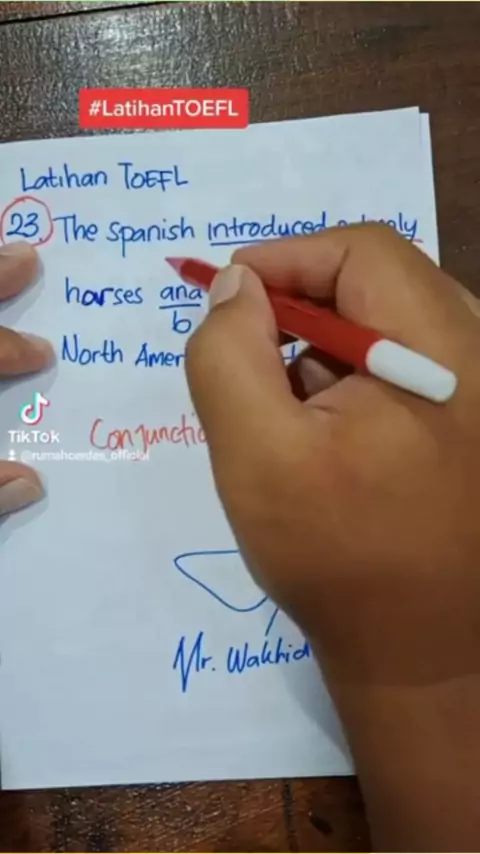 #LatihanTOEFL
Latihan TOEFL
23. The Spanish introduced only
horses and
b
North Amer
TikTok
Conjunctio
@rumahcerdas_official
Mr. Wakhid